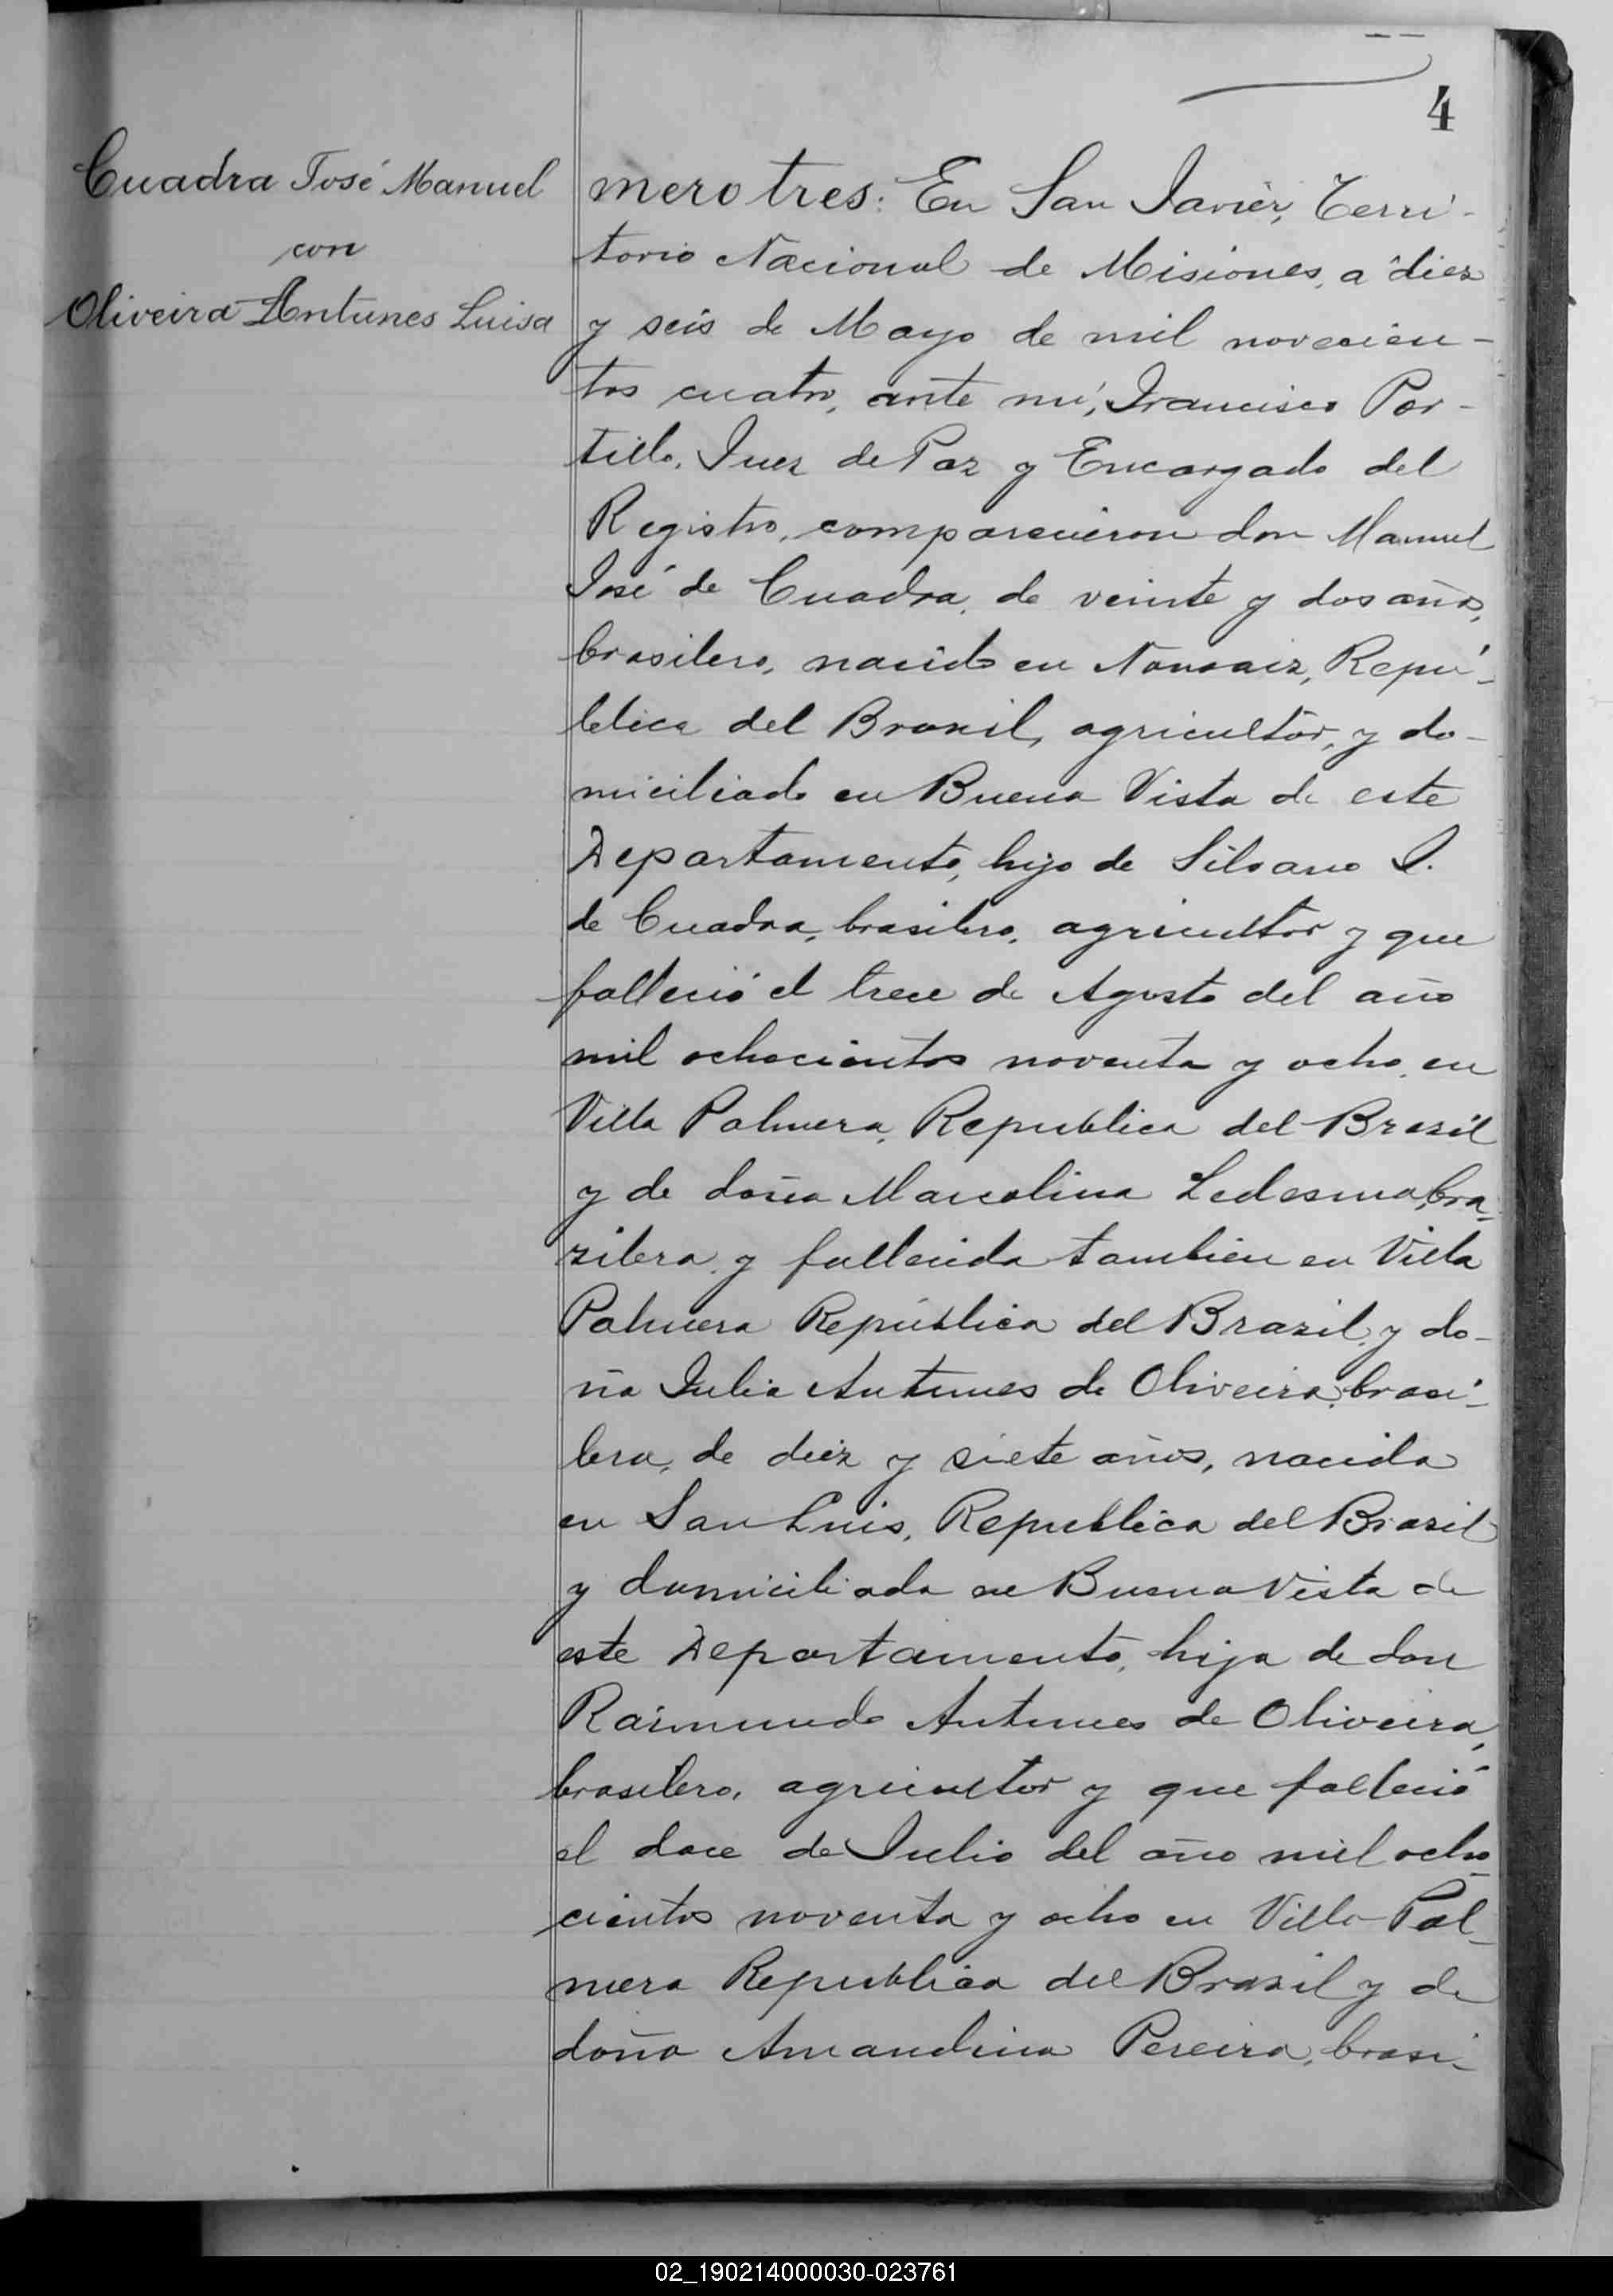 4
Cuadra José Manuel
con
Oliveira Antunes Luisa
mero tres: En San Javier, Terri-
torio Nacional de Misiones, a diez
y seis de Mayo de mil novecien-
tos cuatro, ante mí, Francisco Por-
tillo, Juez de Paz y Encargado del
Registro, comparecieron don Manuel
José de Cuadra, de veinte y dos años,
brasilero, nacido en Nonoaiz, Repú-
blica del Brazil, agricultor, y do-
miciliado en Buena Vista de este
Departamento, hijo de Silvano J.
de Cuadra, brasilero, agricultor y que
falleció el trece de Agosto del año
mil ochocientos noventa y ocho, en
Villa Palmera, Republica del Brazil
y de doña Marcolina Ledesma, bra-
zilera y fallecida tambien en Villa
Palmera República del Brazil, y do-
ña Julia Antunes de Oliveira, brasi-
lera, de diez y siete años, nacida
en San Luis, Republica del Brazil
y domiciliada en Buena Vista de
este Departamento, hija de don
Raimundo Antunes de Oliveira,
brasilero, agricultor y que falleció
el doce de Julio del año mil ocho-
cientos noventa y ocho en Villa Pal-
mera Republica del Brazil y de
doña Amandina Pereira, brasi-
02_190214000030-023761